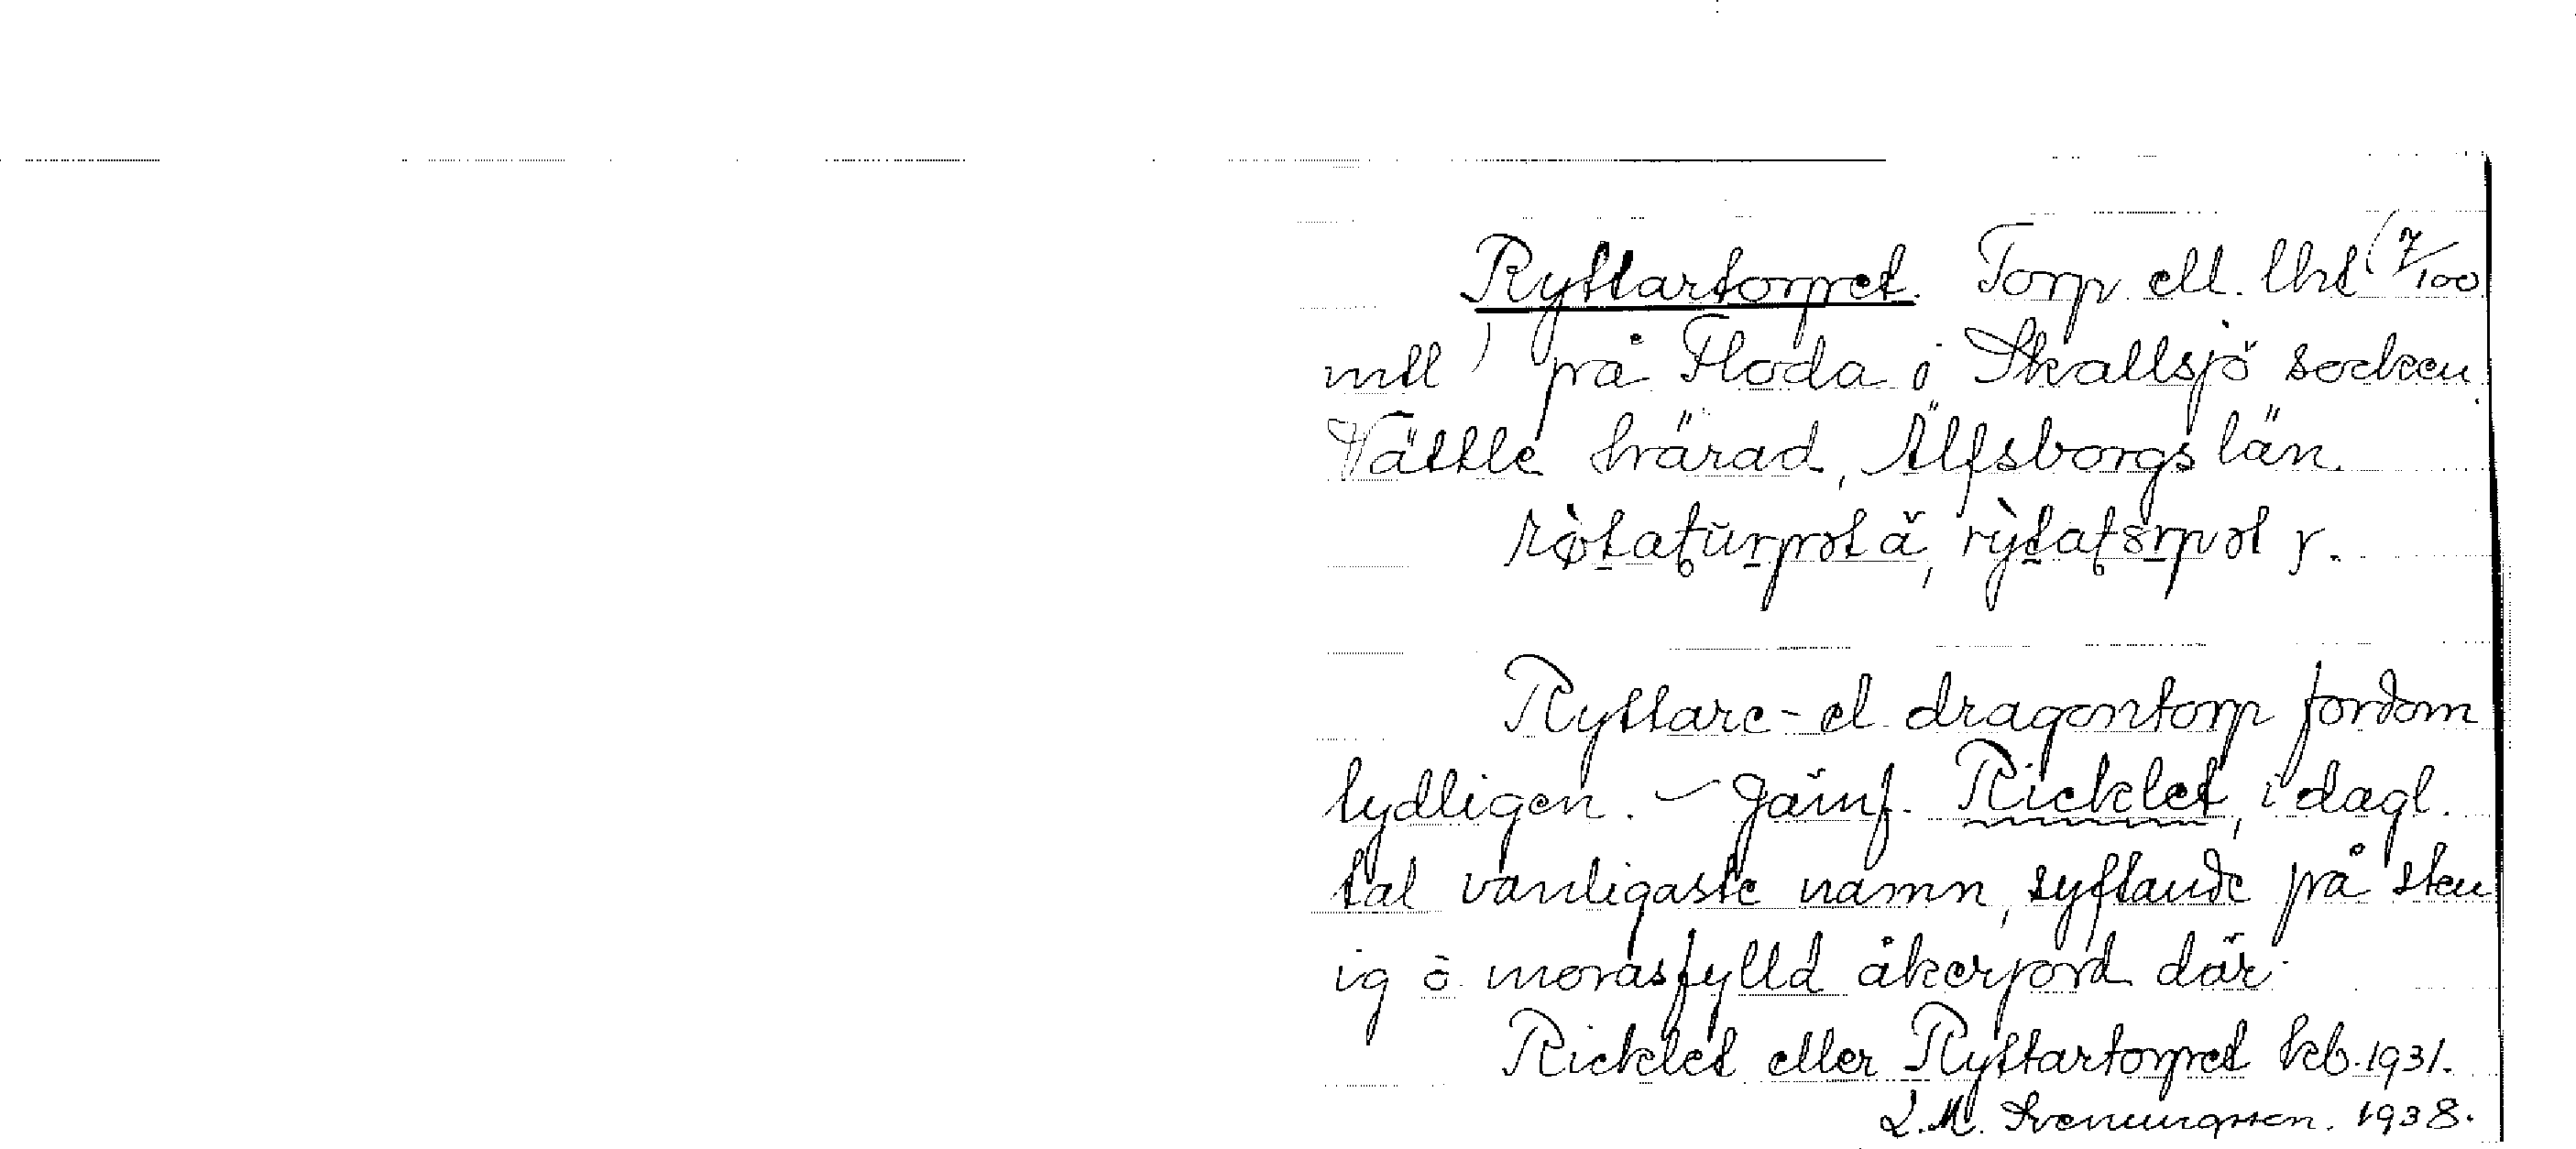 Ryttartorpet. Torp ell. lht (7/100
mtl) på Floda i Skallsjö socken
Vättle härad, Älfsborgs län.
Ryttare- el. dragontorp fordom
tydligen. – Jämf. Ricklet, i dagl.
tal vanligaste namn, syftande på sten
ig ö morasfylld åkerjord där.
Ricklet eller Ryttartorpet kb. 1931.
L.M. Svenungsson. 1938.